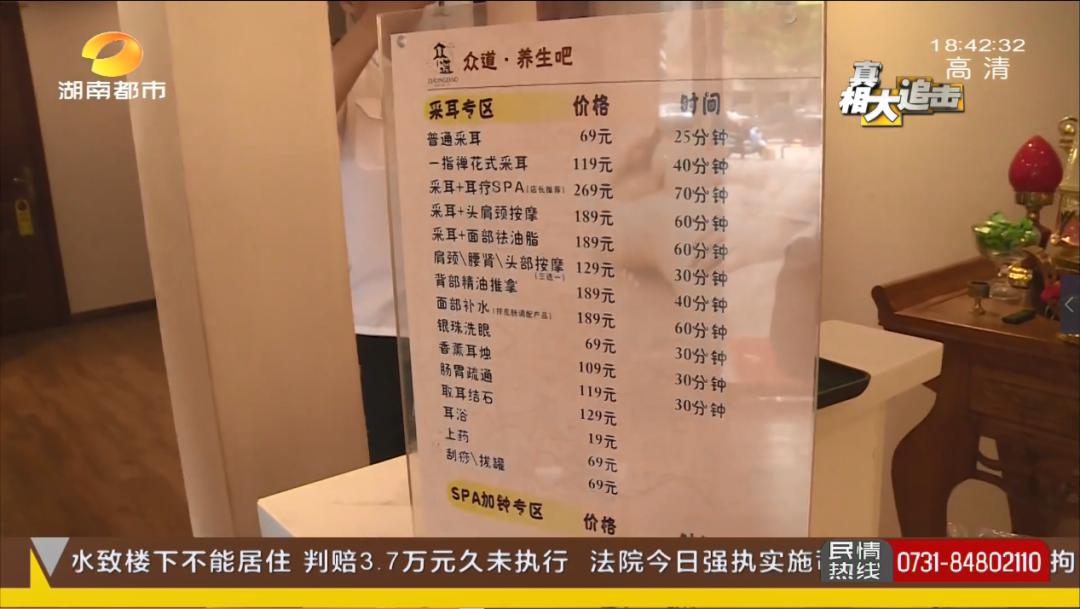 湖南都市
18:42:32
高清
真相大追击
众道
ZHONGDAO
众道·养生吧
采耳专区 价格 时间
普通采耳 69元 25分钟
一指禅花式采耳 119元 40分钟
采耳+耳疗SPA(店长推荐) 269元 70分钟
采耳+头肩颈按摩 189元 60分钟
采耳+面部祛油脂 189元 60分钟
肩颈\腰肾\头部按摩 129元 30分钟
(三选一)
背部精油推拿 189元 40分钟
面部补水 189元 60分钟
银珠洗眼 69元 30分钟
香薰耳烛 109元 30分钟
肠胃疏通 119元 30分钟
取耳结石 129元
耳浴 19元
上药 69元
刮痧\拔罐 69元
SPA加钟专区 价格
水致楼下不能居住 判赔3.7万元久未执行 法院今日强执实施 拘
民情热线 0731-84802110